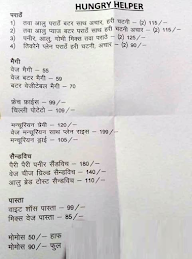 HUNGRY HELPER
पराठें
1) तवा आलु पराठें बटर साथ अचार, हरी चटनी - (2) 115 /-
2) तवा आलु प्याज बटर पराठें साथ हरी चटनी अचार - (2) 115 /-
3) पनीर, आलु, गोभी मिक्स तवा पराठें - (2) 125 /-
4) तिकोने प्लेन पराठें हरी चटनी, अचार - (2) 90 /-
मैगी
वेज मैगी - 55
वेज बटर मैगी - 59
बटर वेजीटेबल मैगी - 70
फ्रेंच फ्राईस - 99 /-
चिल्ली पोटेटो - 109 /-
मन्चूरियन ग्रेवी - 120 /-
वेज मन्चूरियन साथ प्लेन राइस - 199 /-
मन्चूरियन ड्राई - 105 /-
सैन्डविच
पैरी पैरी पनीर सैंडविच - 180 /-
वेज चीज ग्रिल्ड सैन्डविच - 140 /-
आलु ब्रेड टोस्ट सैन्डविच - 110 /-
पास्ता
वाइट सॉस पास्ता - 99 /-
मिक्स वेज पास्ता - 85 /-
मोमोस 50 /- हाफ
मोमोस 90 /- फुल